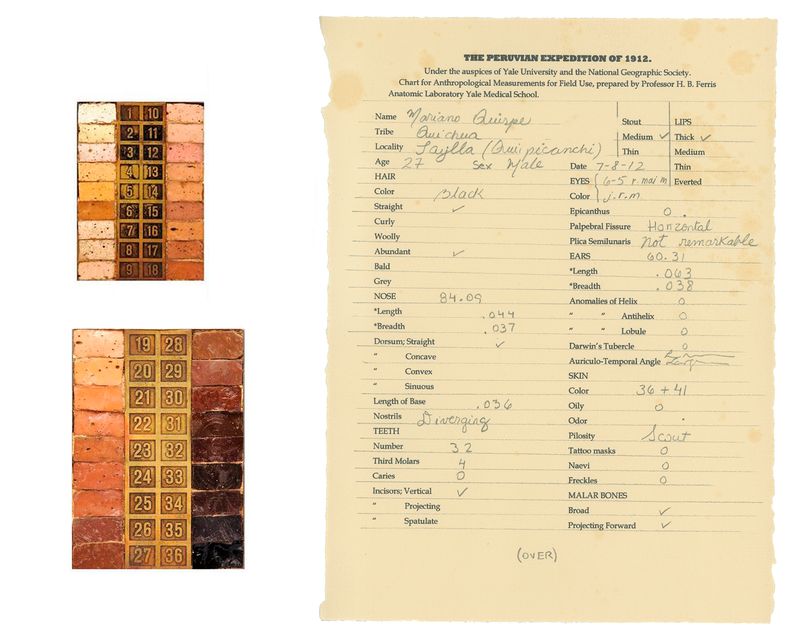 1 10
2 11
3 12
4 13
5 14
6 15
7 16
8 17
9 18
19 28
20 29
21 30
22 31
23 32
24 33
25 34
26 35
27 36
THE PERUVIAN EXPEDITION OF 1912.
Under the auspices of Yale University and the National Geographic Society.
Chart for Anthropological Measurements for Field Use, prepared by Professor H. B. Ferris
Anatomic Laboratory Yale Medical School.
Name Mariano Quispe
Tribe Quichua
Locality (Quipicanchi)
Age 27 Sex Male
HAIR
Color Black
Straight ✓
Curly
Woolly
Abundant ✓
Bald
Grey
NOSE 84.09
*Length .044
*Breadth .037
Dorsum; Straight ✓
" Concave
" Convex
" Sinuous
Length of Base .036
Nostrils Diverging
TEETH
Number 32
Third Molars 4
Caries 0
Incisors; Vertical ✓
" Projecting
" Spatulate
Stout LIPS
Medium ✓ Thick ✓
Thin Medium
Date 7-8-12 Thin
EYES 6-5 r.m Everted
Color j.r.m
Epicanthus 0
Palpebral Fissure Horizontal
Plica Semilunaris Not remarkable
EARS 60.31
*Length .063
*Breadth .038
Anomalies of Helix 0
" " Antihelix 0
" " Lobule 0
Darwin's Tubercle 0
Auriculo-Temporal Angle
SKIN
Color 36 + 41
Oily 0
Odor .
Pilosity Scout
Tattoo masks 0
Naevi 0
Freckles 0
MALAR BONES
Broad ✓
Projecting Forward ✓
(OVER)